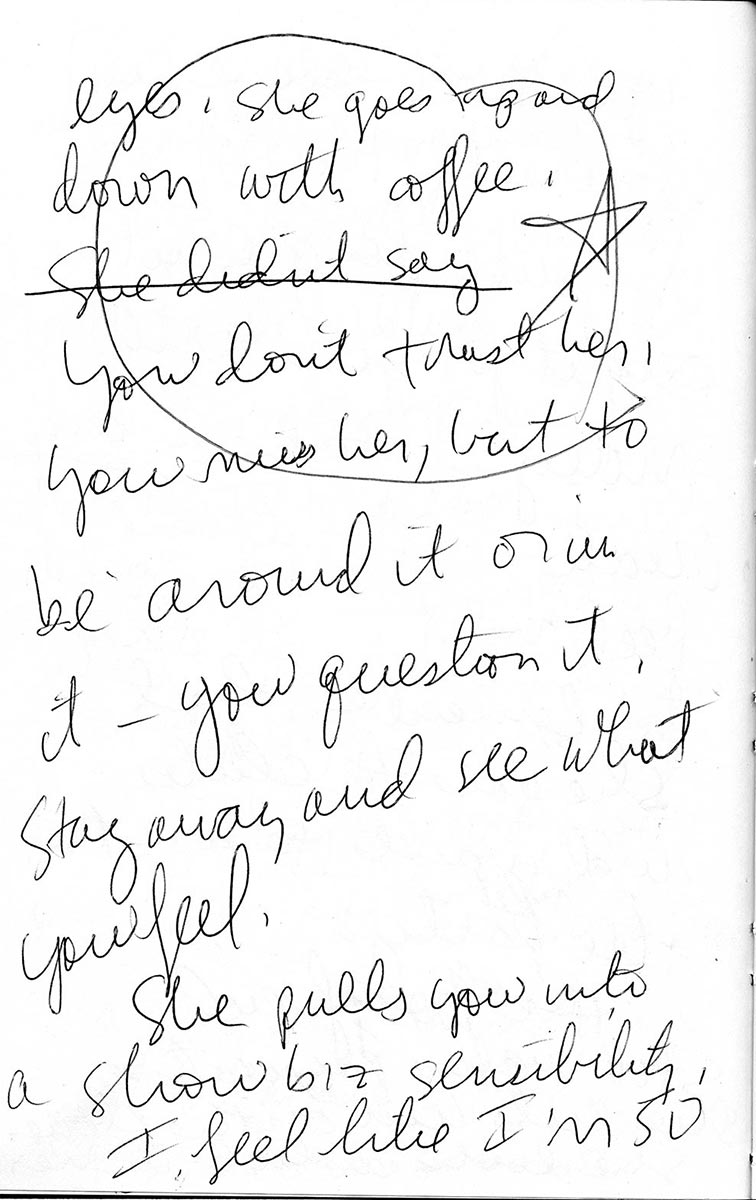 eyes. She goes up and
down with coffee.
She didn't say
You don't trust her,
you miss her, but to
be around it or in
it – you question it.
Stay away and see what
you feel.
She pulls you into
a showbiz sensibility.
I feel like I'm 50